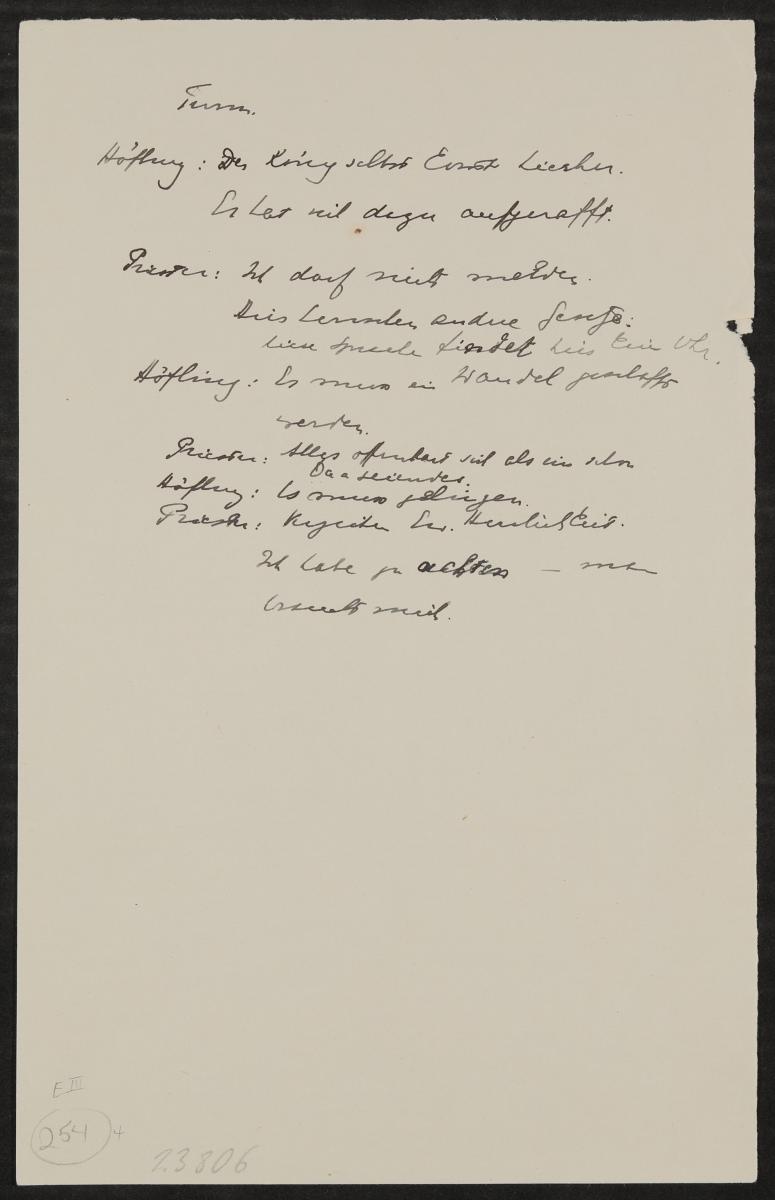 Turm.
Höfling: Der König selbst kommt hierher.
Er hat sich dazu aufgerafft.
Priester: Ich darf nicht melden.
Hier herrschen andere Gesetze:
diese Sprache findet hier kein Ohr.
Höfling: Es muss ein Wandel geschafft
werden.
Priester: Alles offenbart sich als ein schon
Daseiendes.
Höfling: Es muss gelingen.
Priester: Verzeihen Ew. Herrlichkeit.
Ich habe zu achten — man
braucht mich.
E III
254 4
23806